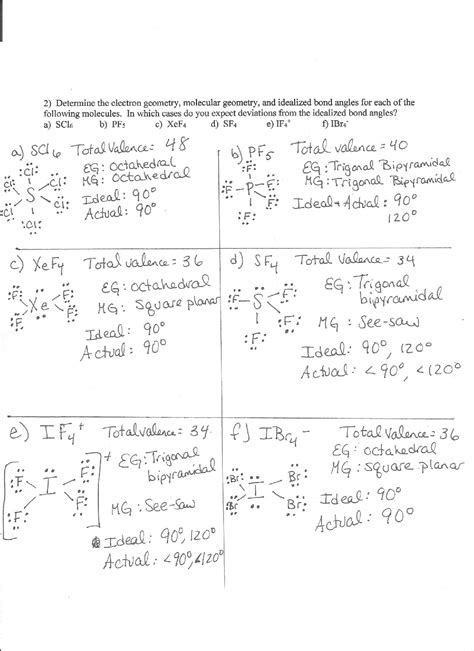 2) Determine the electron geometry, molecular geometry, and idealized bond angles for each of the
following molecules. In which cases do you expect deviations from the idealized bond angles?
a) SCl6 b) PF5 c) XeF4 d) SF4 e) IF4+ f) IBr4-
a) SCl6 Total Valence = 48
EG: Octahedral
MG: Octahedral
Ideal: 90°
Actual: 90°
:Cl:
:Cl Cl:
S
:Cl Cl:
:Cl:
b) PF5 Total valence = 40
EG: Trigonal Bipyramidal
MG: Trigonal Bipyramidal
Ideal + Actual: 90°
120°
:F:
:F-P-F:
:F:
c) XeF4 Total valence = 36
EG: octahedral
MG: square planar
Ideal: 90°
Actual: 90°
:F F:
Xe
:F F:
d) SF4 Total Valence = 34
EG: Trigonal
bipyramidal
MG: See-saw
Ideal: 90°, 120°
Actual: <90°, <120°
:F-S F:
F:
:F:
e) IF4+ Total valence = 34
+ EG: Trigonal
bipyramidal
MG: See-saw
Ideal: 90°, 120°
Actual: <90°, <120°
:F I F:
:F: F:
f) IBr4- Total Valence = 36
EG: octahedral
MG: square planar
Ideal: 90°
Actual: 90°
:Br Br:
I
:Br Br: